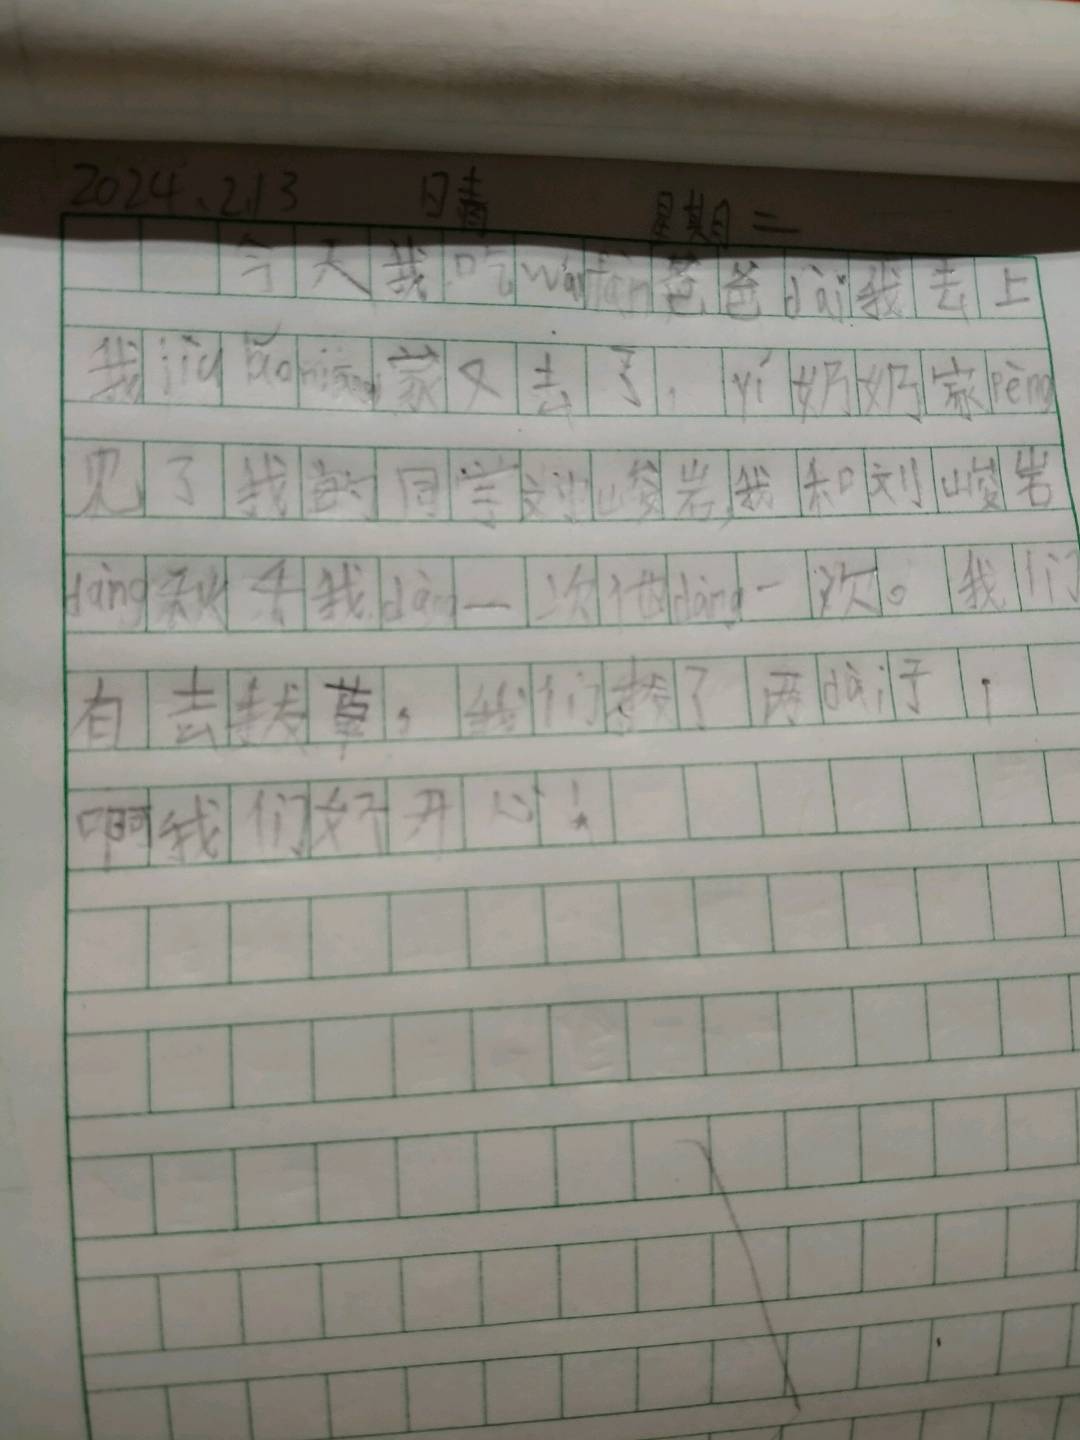 2024.2.13 日晴 星期二
今天我吃wán fàn爸爸dài我去上
我jiù lǎo niáng家又去了,yí奶奶家pèng
见了我的同学刘峻岩,我和刘峻岩
dàng秋千我dàng一次他dàng一次。我们
有去拔草,我们拔了两dài子,
啊我们好开心!